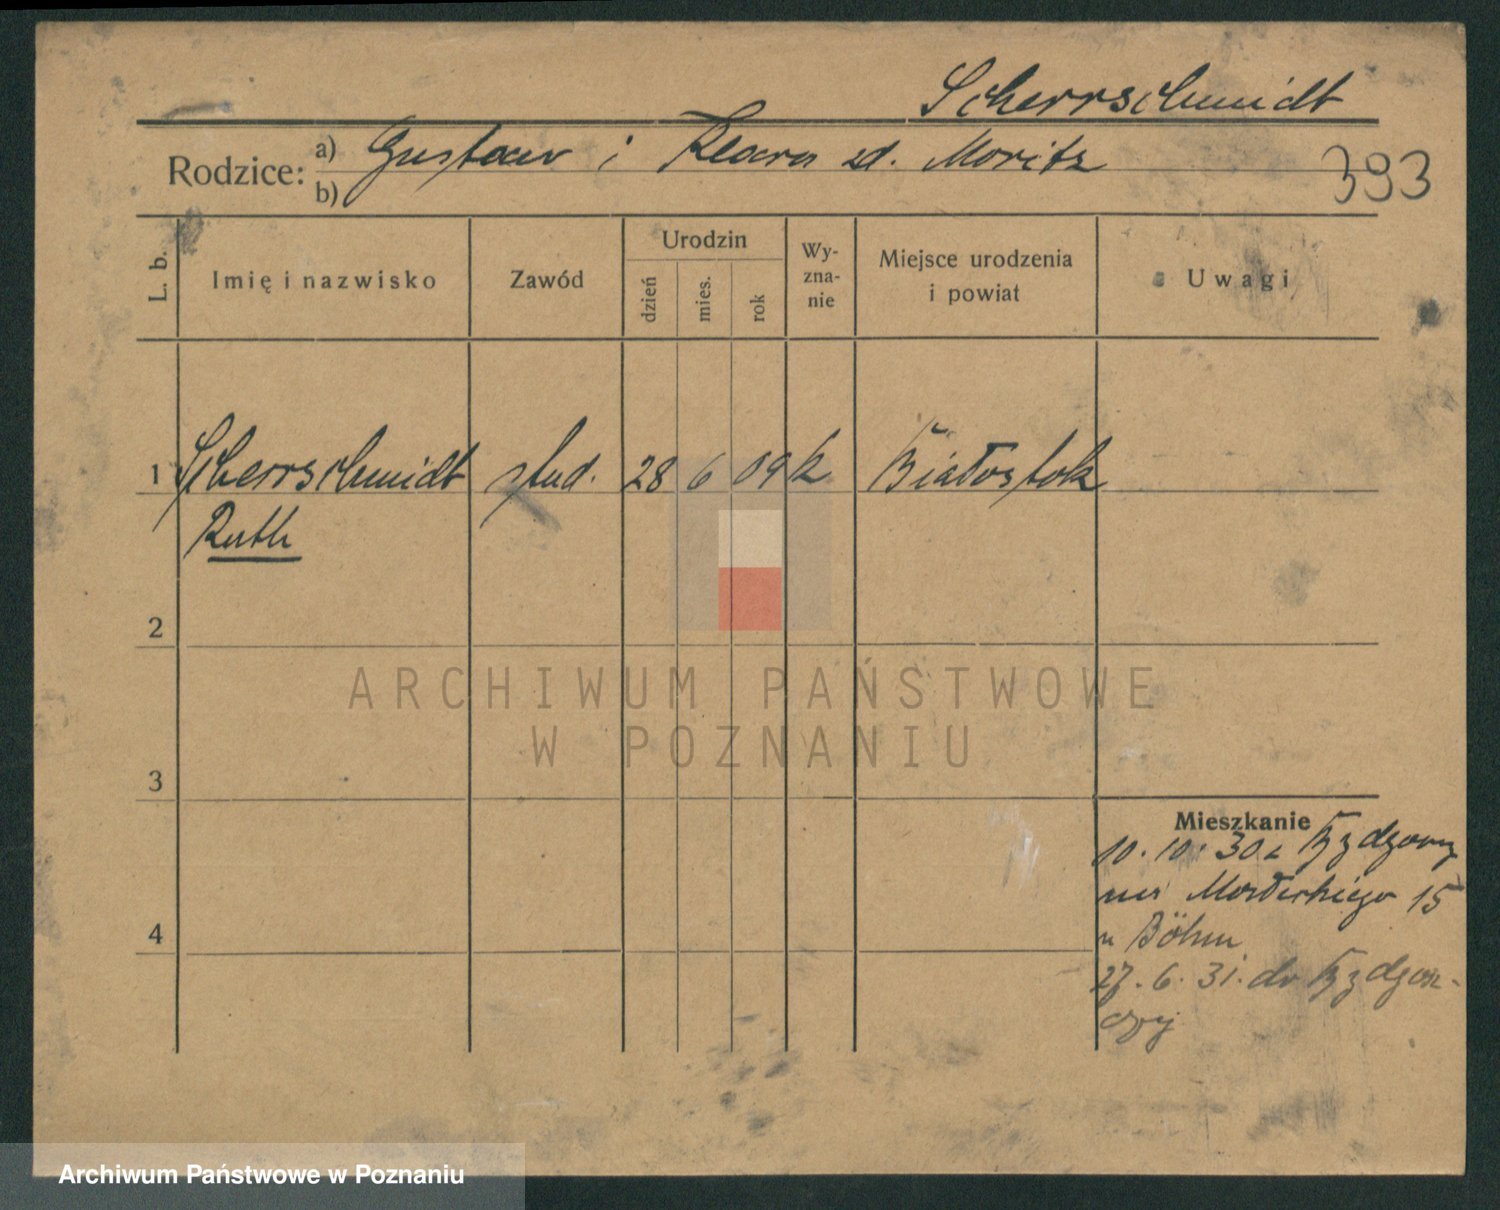 Scherrschmidt
Rodzice: a) Gustaw i Klara zd. Moritz
b)
393
L. b.
Imię i nazwisko
Zawód
Urodzin
dzień
mies.
rok
Wy-
zna-
nie
Miejsce urodzenia
i powiat
Uwagi
1 Scherrschmidt stud. 28 6 09 k Białostok
Ruth
2
3
4
Mieszkanie
10. 10. 30 z Bydgoszczy
15
u Böhm
27. 6. 31. do Bydgosz-
czy
ARCHIWUM PAŃSTWOWE
W POZNANIU
Archiwum Państwowe w Poznaniu